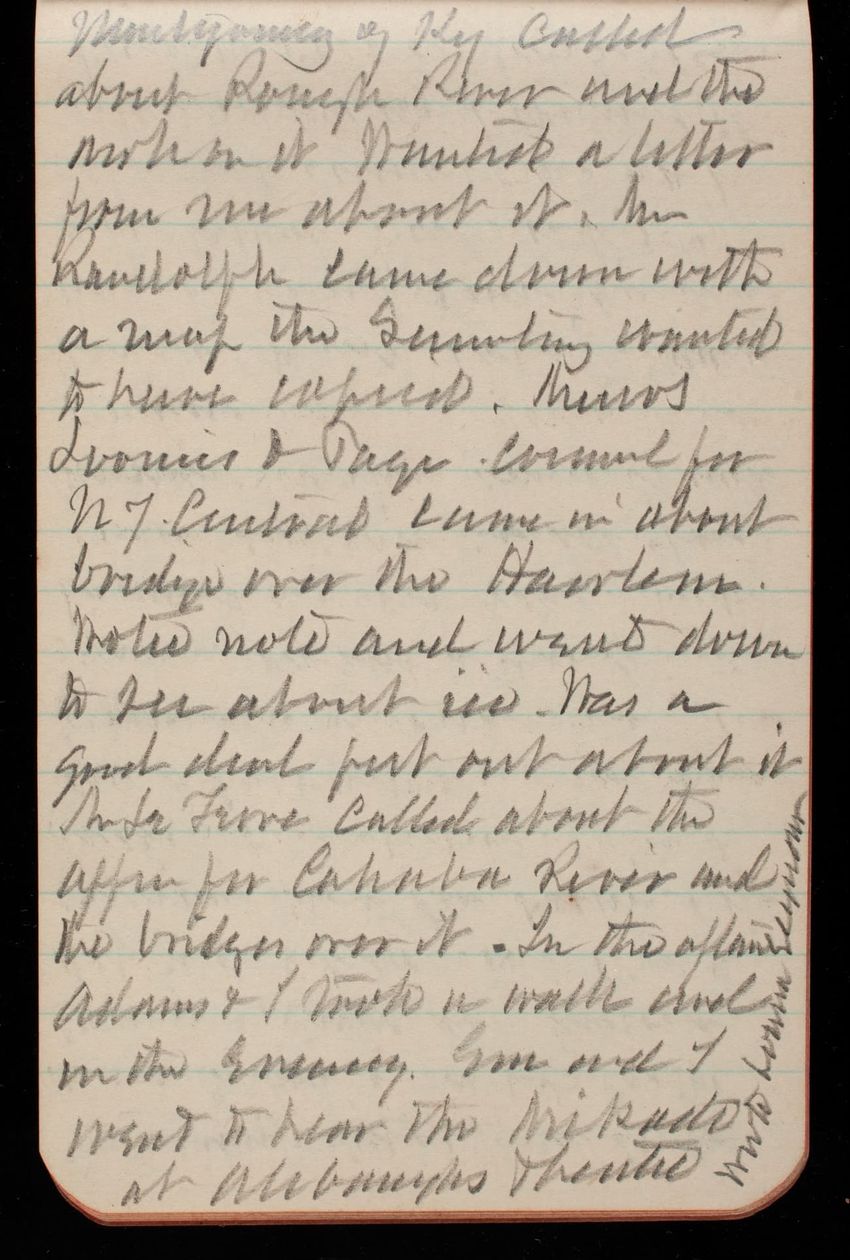 Montgomery of Ky called
about Rough River and the
work on it Wanted a letter
from me about it. Mr
Randolph came down with
a map the Secretary wanted
to have copied. Messrs
Loomis & Page counsel for
N Y. Central came in about
bridge over the Haarlem.
Wrote note and went down
to see about ice. Was a
good deal put out about it
Mr Le Fevre called about the
affair for Cahaba River and
the bridges over it. In the
Adams & I took a walk and
in the Evening. Em and I
went to hear the Mikado
at Albaughs Theatre
Write Louisa